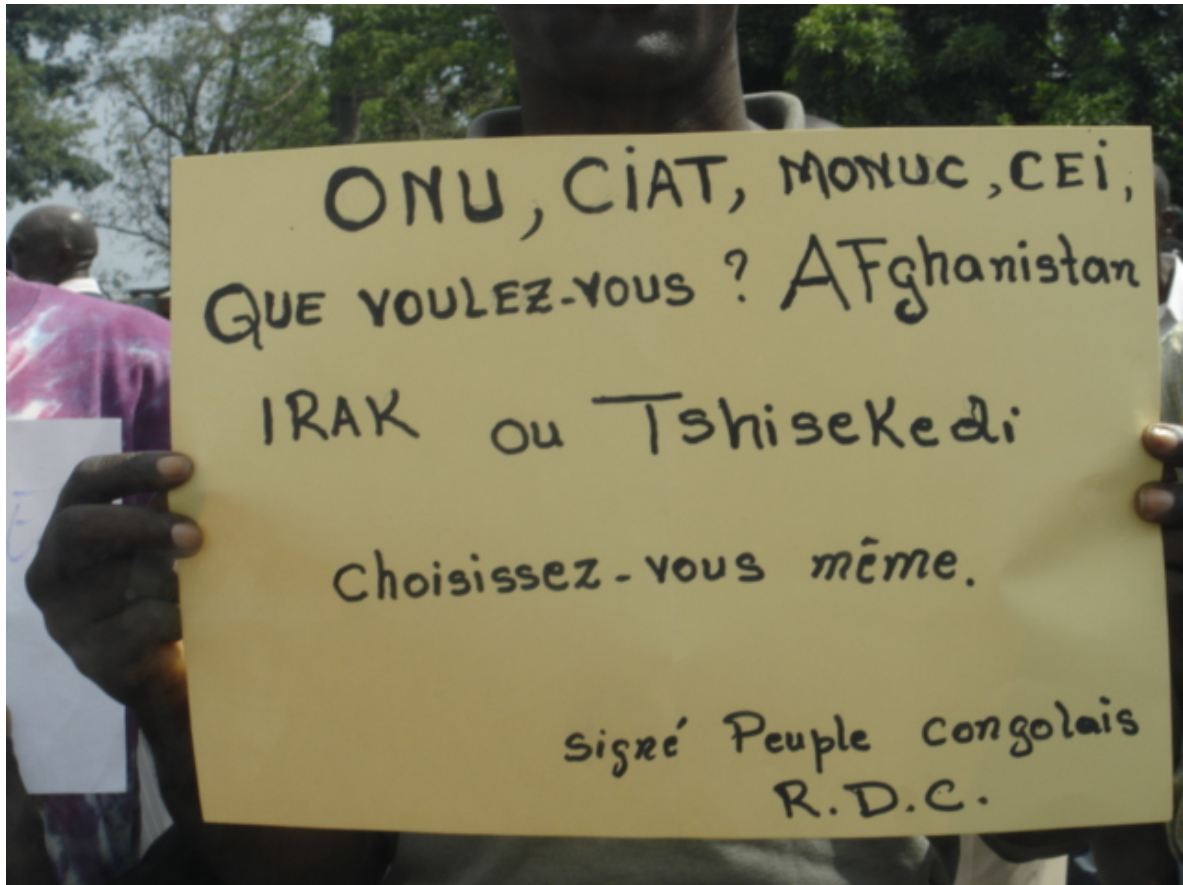 ONU, CiAT, MONUC, CEi,
QUE VOULEZ-VOUS ? AFghanistan
IRAK ou TshiseKedi
choisissez-vous même.
signé Peuple congolais
R.D.C.